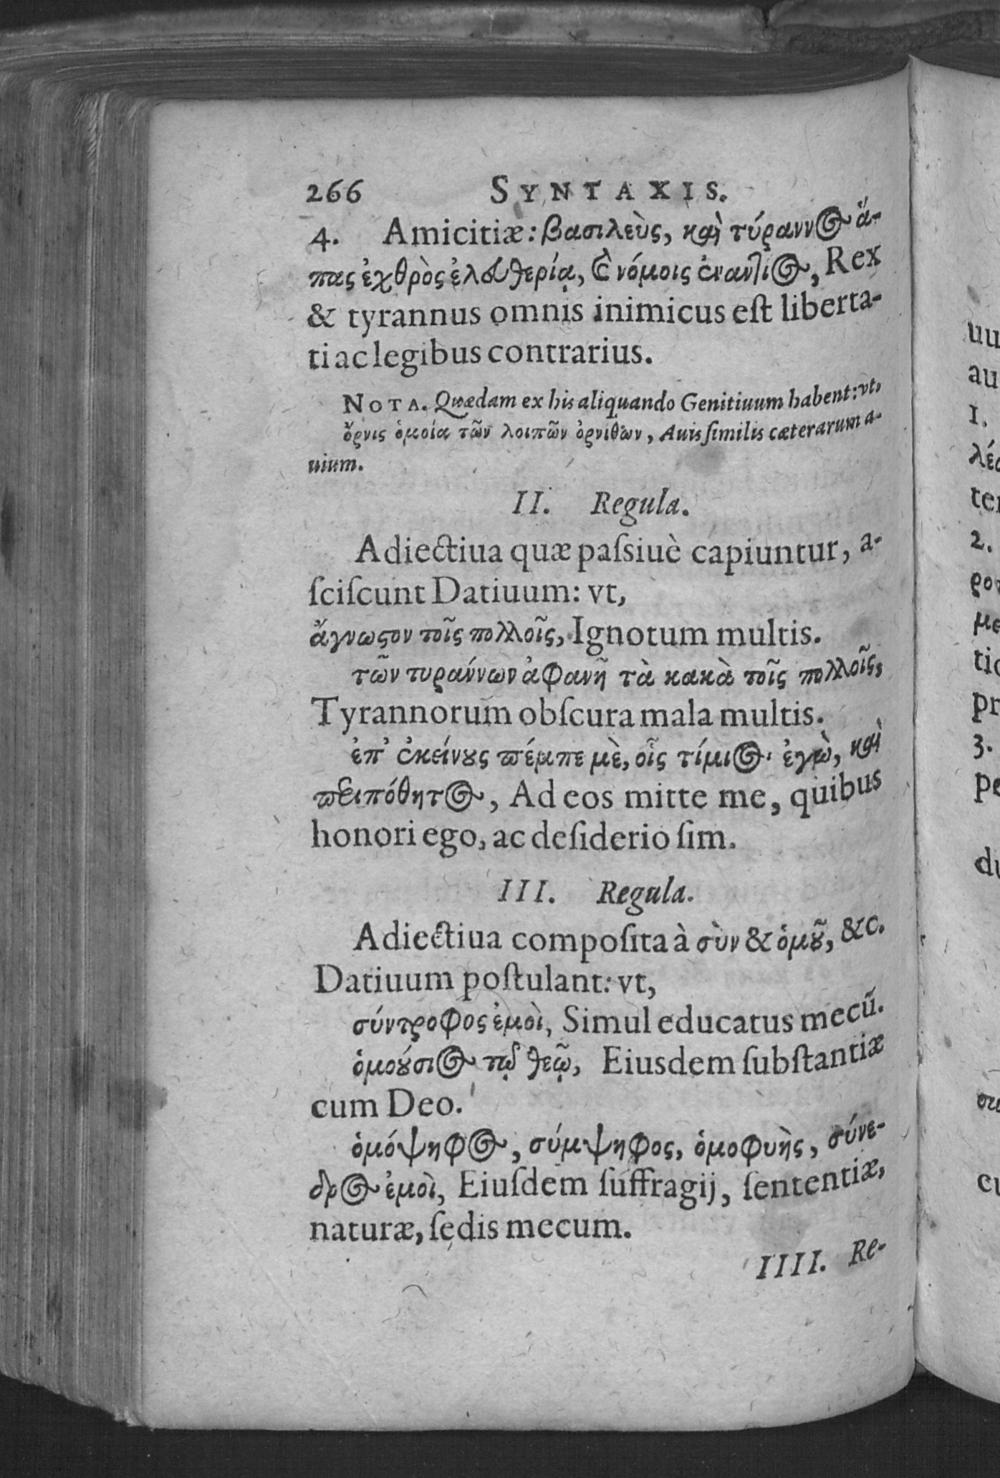 266 SYNTAXIS.
4. Amicitiæ: βασιλεὺς, καὶ τύραννος ἅ-
πας ἐχθρὸς ἐλευθερίᾳ, καὶ νόμοις ἐναντίος, Rex
& tyrannus omnis inimicus eſt liberta-
ti ac legibus contrarius.
NOTA. Quædam ex his aliquando Genitiuum habent: vt,
ὄρνις ὁμοία τῶν λοιπῶν ὀρνίθων, Auis ſimilis cæterarum a-
uium.
II. Regula.
Adiectiua quæ paſsiuè capiuntur, a-
ſciſcunt Datiuum: vt,
ἄγνωστον τοῖς πολλοῖς, Ignotum multis.
τῶν τυράννων ἀφανῆ τὰ κακὰ τοῖς πολλοῖς,
Tyrannorum obſcura mala multis.
ἐπ' ἐκείνους πέμπε μὲ, οἷς τίμιος ἐγὼ, καὶ
περιπόθητος, Ad eos mitte me, quibus
honori ego, ac deſiderio ſim.
III. Regula.
Adiectiua compoſita à σὺν & ὁμοῦ, &c.
Datiuum poſtulant: vt,
σύντροφος ἐμοὶ, Simul educatus mecũ.
ὁμούσιος τῷ θεῷ, Eiusdem ſubſtantiæ
cum Deo.
ὁμόψηφος, σύμψηφος, ὁμοφυὴς, σύνε-
δρος ἐμοὶ, Eiuſdem ſuffragij, ſententiæ,
naturæ, ſedis mecum.
IIII. Re-